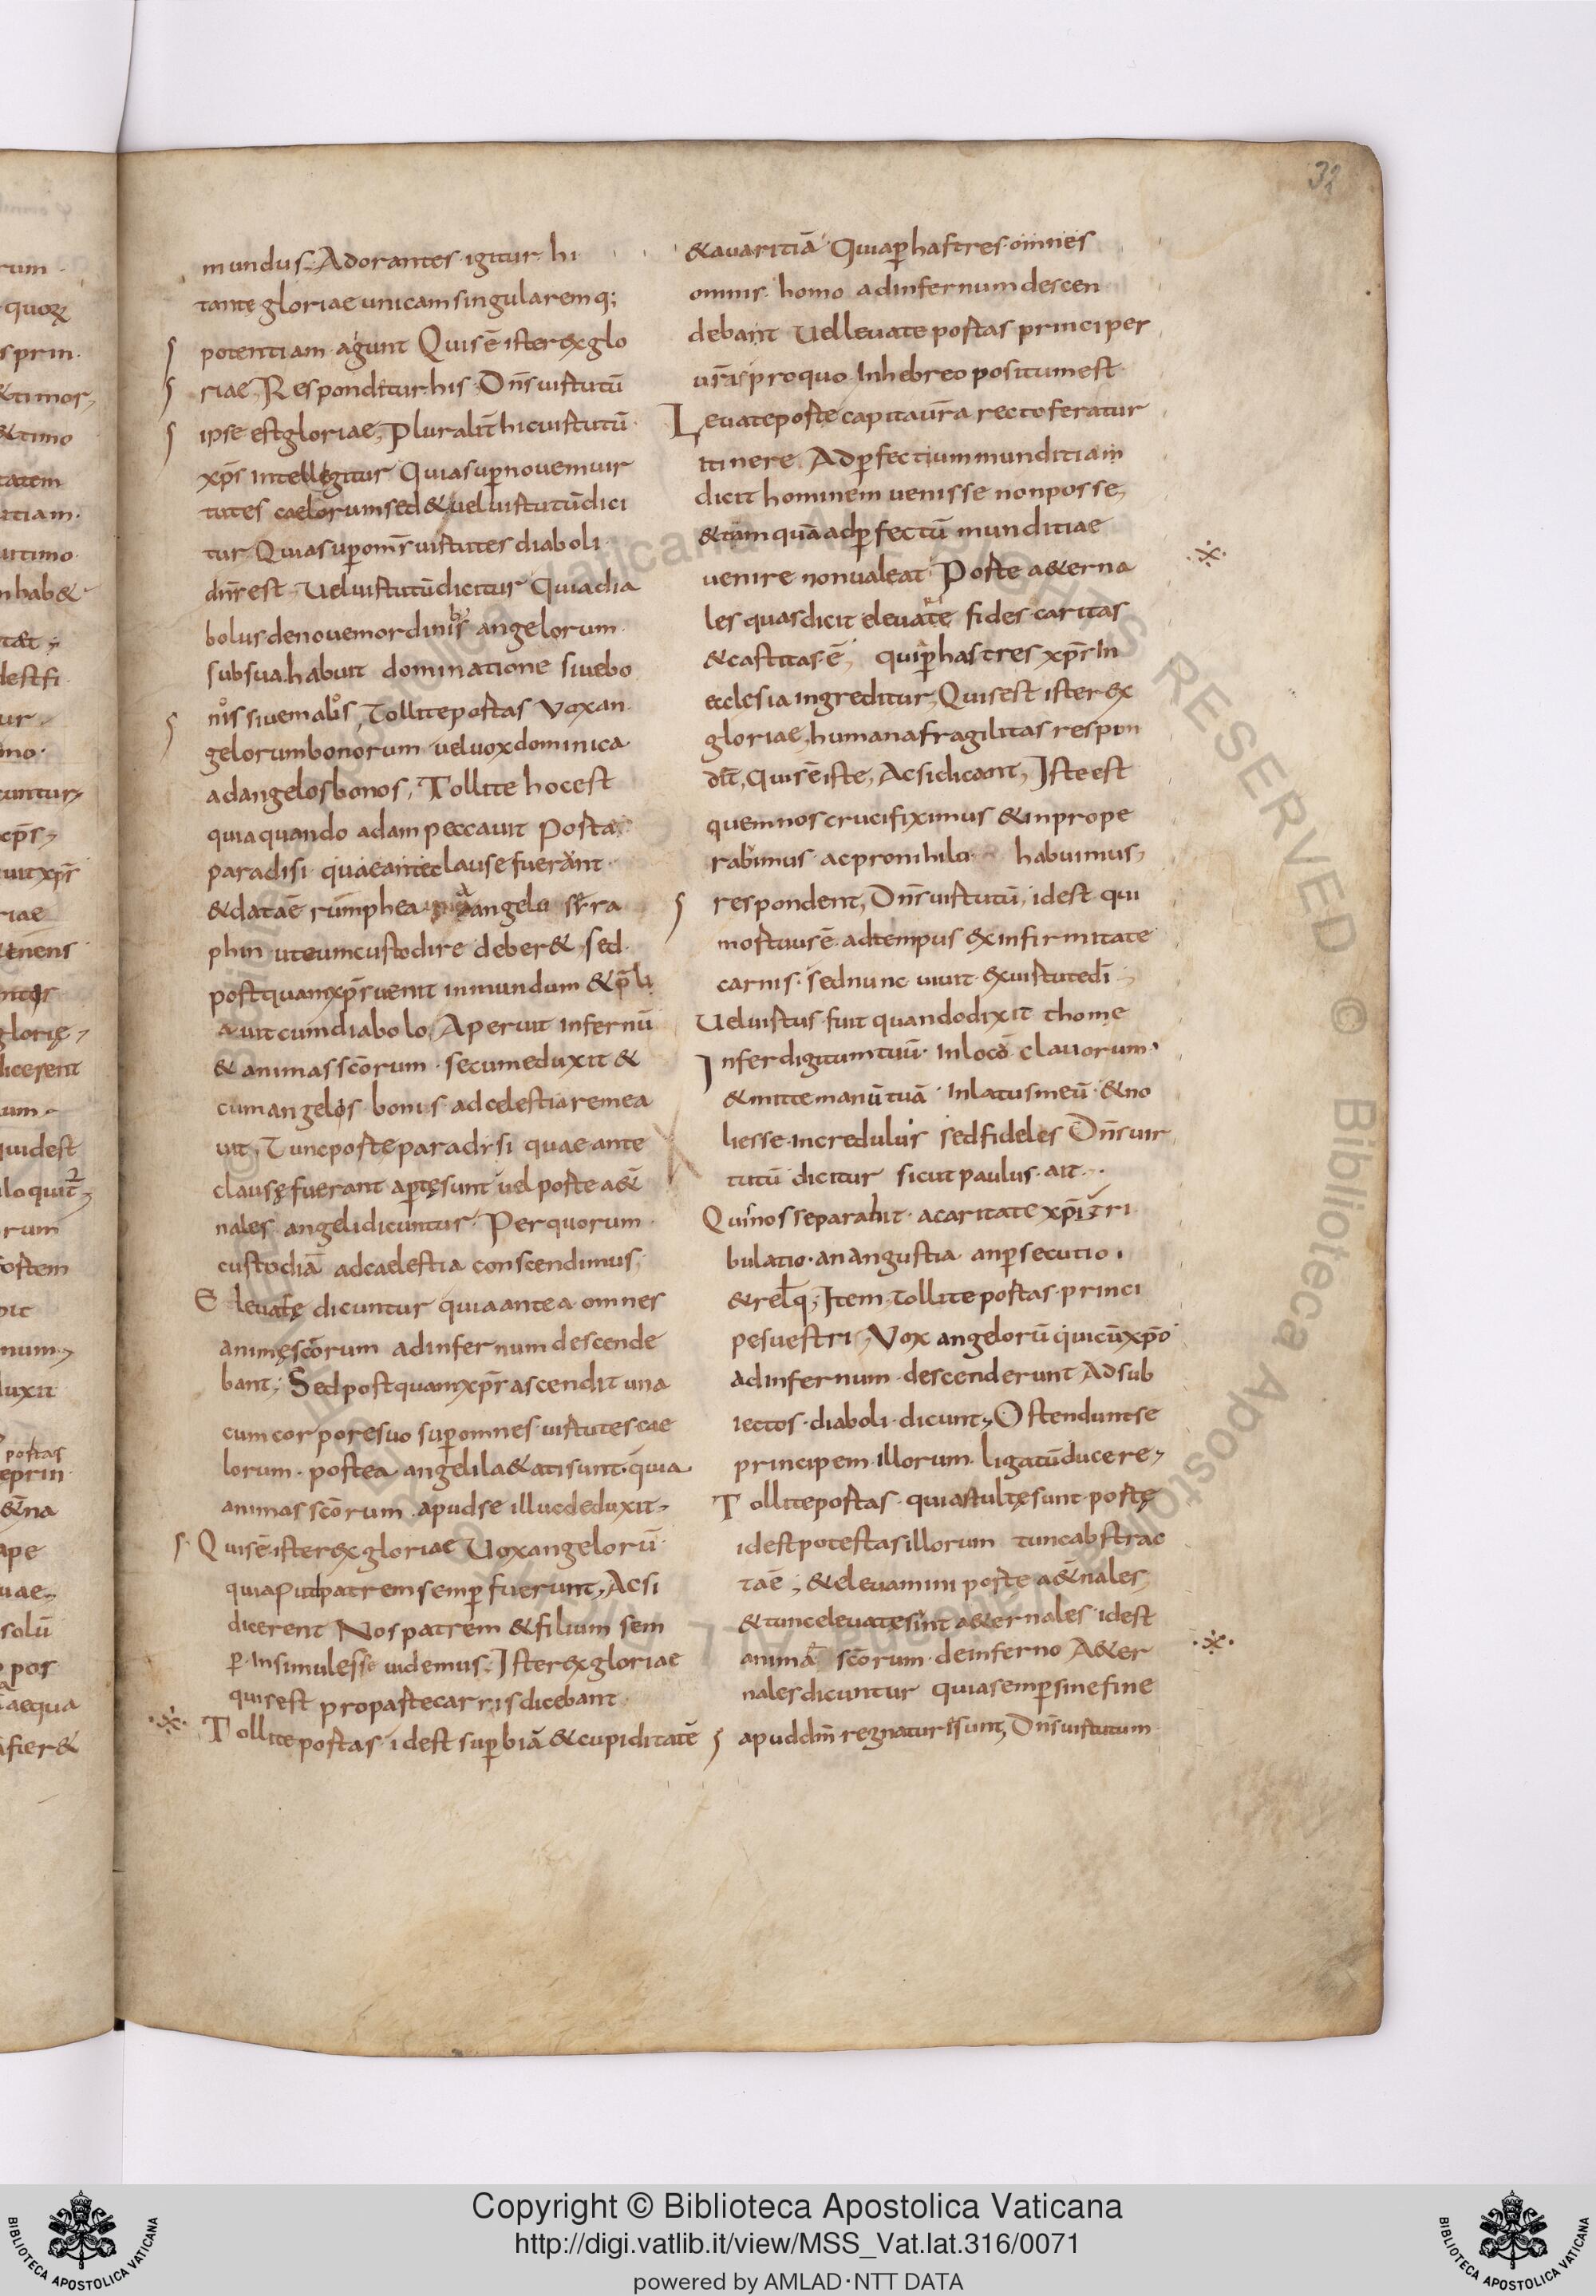 32
mundus. Adorantes igitur hi
tantę gloriae unicam singularemq;
potentiam agunt Quis ē iste rex glo
riae, Respondetur his. Dn̄s uirtutū
ipse est gloriae, Pluralit̄ hic uirtutū
xp̄s intellegitur Quia sup nouem uir
tutes caelorum sed & uel uirtutū dici
tur Quia sup om̄s uirtutes diaboli
dn̄s est. Uel uirtutū dicitur Quia dia
bolus de nouem ordinibꝰ angelorum
sub sua habuit dominatione siue bo
nos siue malos, Tollite portas Vox an
gelorum bonorum uel uox dominica
ad angelos bonos, Tollite hoc est
quia quando adam peccauit Porta
paradisi quae ante clause fuerant
& data ē rumphea angelo serra
phin ut eum custodire deber& sed
postquam xp̄s uenit in mundum & p̄li
auit cum diabolo Aperuit infernū
& animas sc̄orum secum eduxit &
cum angelos bonis ad celestia remea
uit, Tunc porte paradisi quae ante
clausę fuerant aptę sunt uel porte a&̄
nales angeli dicuntur. Per quorum
custodiā ad caelestia conscendimus,
Eleuatę dicuntur quia antea omnes
animę sc̄orum ad infernum descende
bant; Sed postquam xp̄s ascendit una
cum corpore suo sup omnes uirtutes cae
lorum. postea angeli la&ati sunt. quia
animas sc̄orum apud se illuc deduxit.
Quis ē iste rex gloriae Uox angelorū
qui aput patrem semp fuerunt, Ac si
dicerent Nos patrem & filium sem
p insimul esse uidemus. Iste rex gloriae
quis est pro parte carnis dicebant
Tollite portas idest supbiā & cupiditatē
& auaritiā Quia p has tres omnes
omnis homo ad infernum descen
debant Uel leuate portas principes
ur̄as pro quo In hebreo positum est
Leuate porte capita ur̄a recto feratur
itinere Ad pfectium munditiam
dicit hominem uenisse non posse,
& tam quā ad pfectū munditiae
uenire non ualeat Porte a&erna
les quas dicit eleuate fides caritas
& castitas ē, qui p has tres xp̄s In
ecclesia ingreditur, Quis est iste rex
gloriae, humana fragilitas respon
d&̄, Quis ē iste, Ac si dicant, Iste est
quem nos crucifiximus & inprope
rabimus ac pro nihilo habuimus,
respondent, Dn̄s uirtutū, idest qui
mortuus ē ad tempus ex infirmitate
carnis. sed nunc uiuit ex uirtute dī
Uel uirtus fuit quando dixit thome
Infer digitum tuū In loco clauorum.
& mitte manū tuā In latus meū & no
li esse incredulus sed fideles Dn̄s uir
tutū dicitur sicut paulus ait..
Qui nos separabit a caritate xp̄i tri
bulatio. an angustia an psecutio.
& relq; Item tollite portas princi
pes uestri, Vox angelorū qui cū xp̄o
ad infernum descenderunt Ad sub
iectos diaboli dicunt, Ostendunt se
principem illorum ligatū ducere,
Tollite portas quia stultę sunt portę
idest potestas illorum tunc abstrac
ta ē; & eleuamini porte a&̄nales
& tunc eleuate sint a&ernales idest
anima sc̄orum de inferno A&er
nales dicuntur quia semp sine fine
apud dm̄ regnaturi sunt, Dn̄s uirtutum
Copyright © Biblioteca Apostolica Vaticana
http://digi.vatlib.it/view/MSS_Vat.lat.316/0071
powered by AMLAD·NTT DATA
BIBLIOTECA APOSTOLICA VATICANA
BIBLIOTECA APOSTOLICA VATICANA